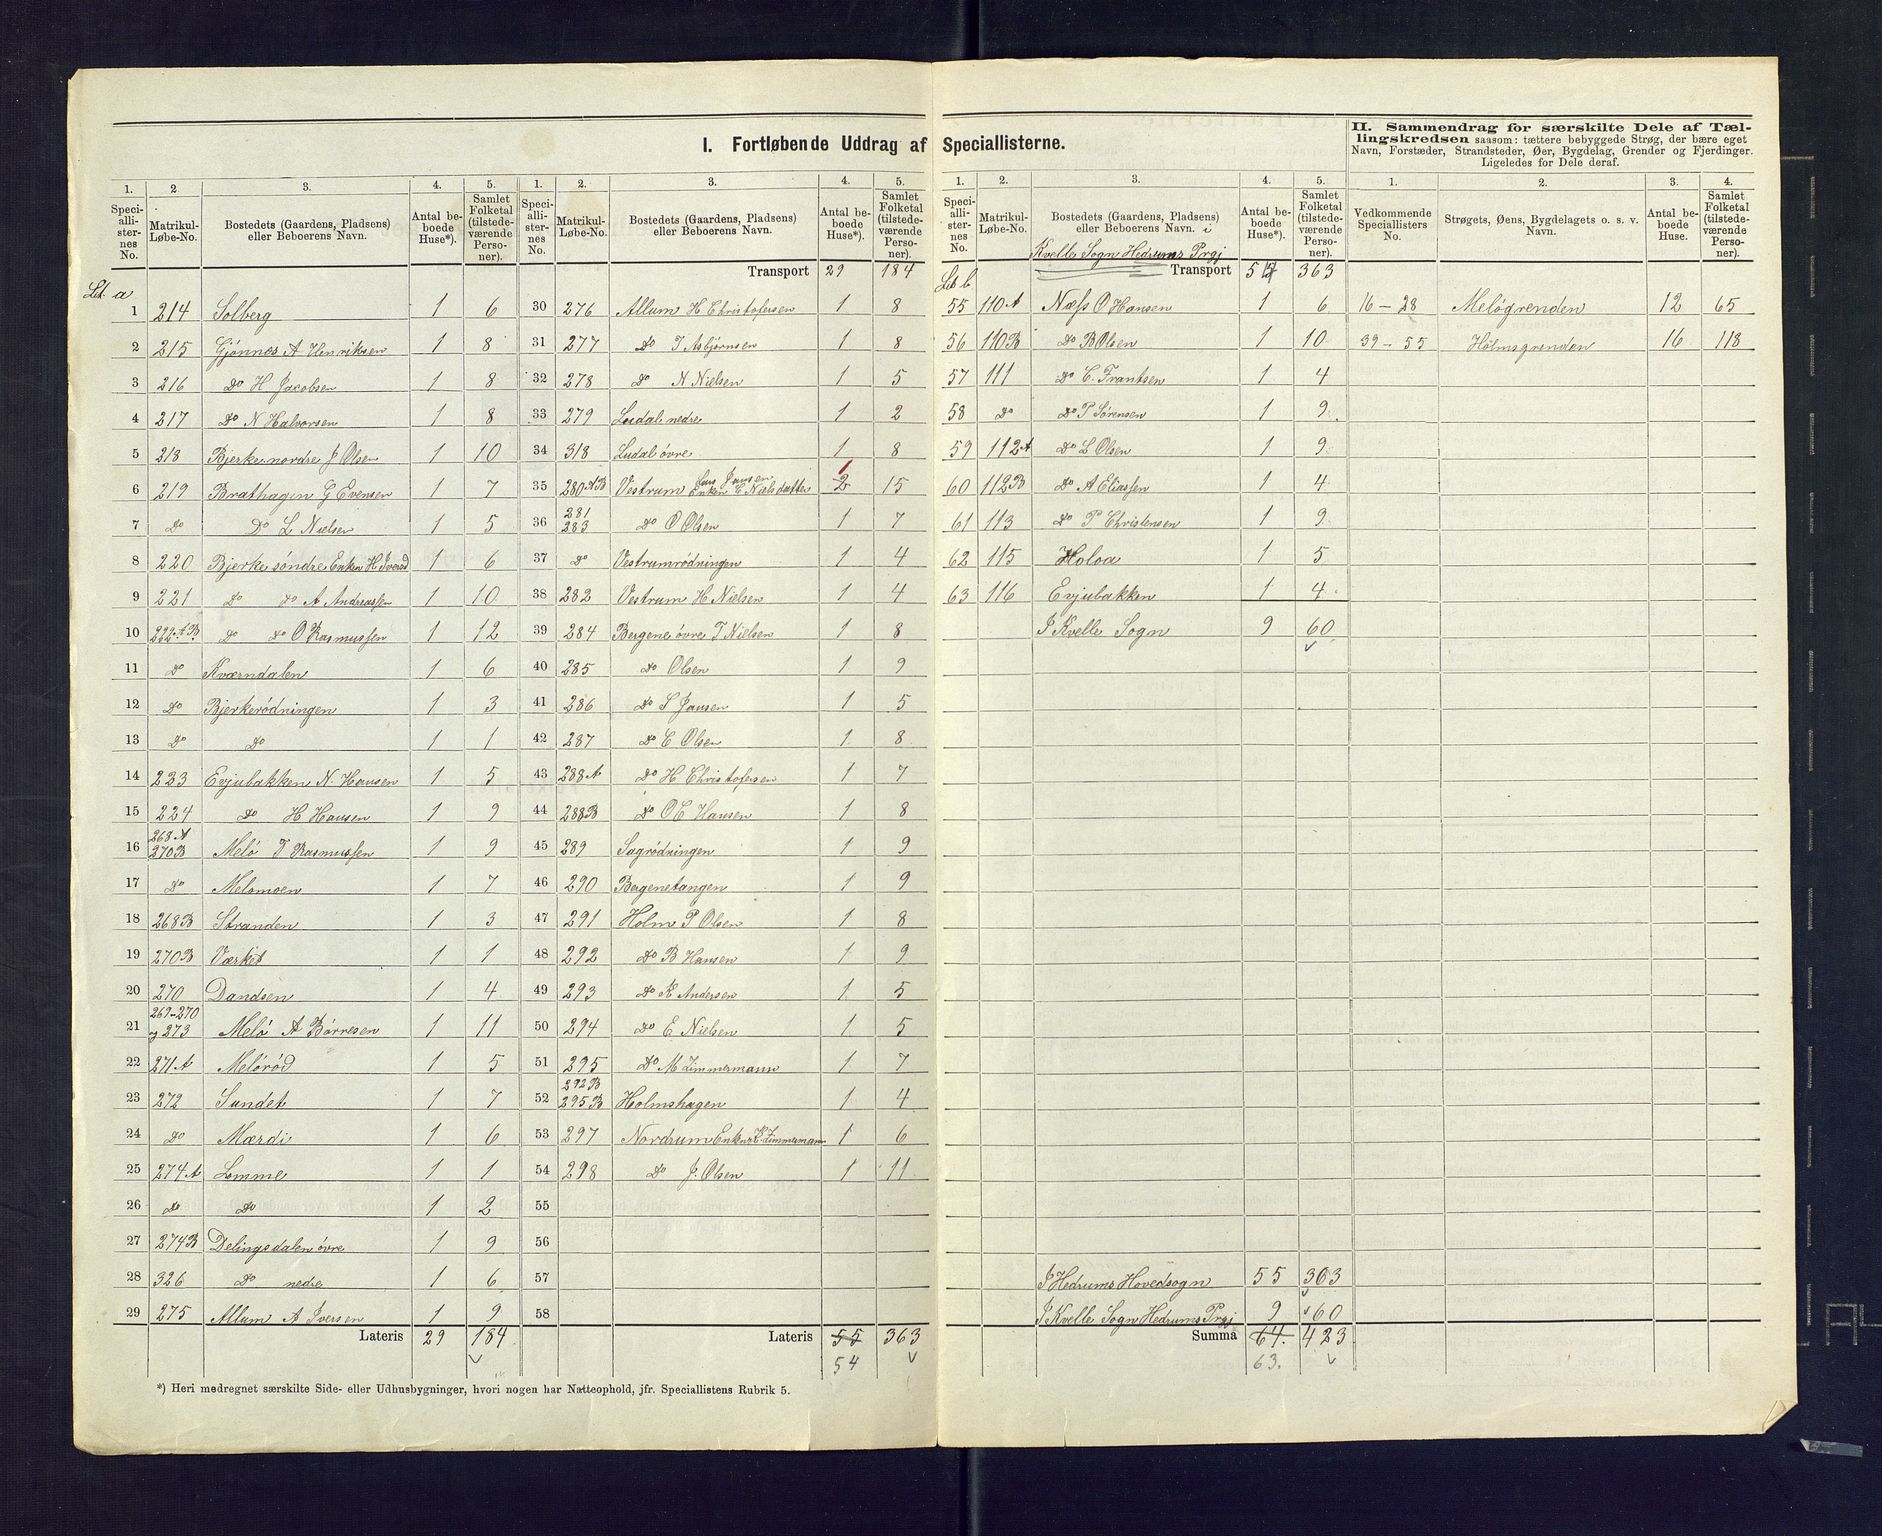 I. Fortløbende Uddrag af Speciallisterne.
II. Sammendrag for særskilte Dele af Tæl-
lingskredsen saasom: tættere bebyggede Strøg, der bære eget
Navn, Forstæder, Strandsteder, Øer, Bygdelag, Grender og Fjerdinger.
Ligeledes for Dele deraf.
1. 2 3. 4. 5.
Speciallisternes No. Matrikul-Løbe-No. Bostedets (Gaardens, Pladsens) eller Beboerens Navn. Antal beboede Huse*). Samlet Folketal (tilstedeværende Personer).
Lit. a
1 214 Solberg 1 6
2 215 Gjønnes A Henriksen 1 8
3 216 Do H Jacobsen 1 8
4 217 Do N Halvorsen 1 8
5 218 Bjerke nordre J Olsen 1 10
6 219 Brathagen G Evensen 1 7
7 Do Do L Nielsen 1 5
8 220 Bjerke søndre Enken H Iversd 1 6
9 221 Do Do A Andreassen 1 10
10 222 A B Do Do O Rasmussen 1 12
11 Do Kværndalen 1 6
12 Do Bjerkerødningen 1 3
13 Do Do 1 1
14 223 Evjubakken N. Hansen 1 5
15 224 Do H Hansen 1 9
16 268 A 270 B Melø T Rasmussen 1 9
17 Do Melomoen 1 7
18 268 B Stranden 1 3
19 270 B Værket 1 1
20 270 Dandsen 1 4
21 269-270 og 273 Melø A Børresen 1 11
22 271 A Melørød 1 5
23 272 Sundet 1 7
24 Do Mærdi 1 6
25 274 A Lomme 1 1
26 Do Do 1 2
27 274 B Delingsdalen øvre 1 9
28 326 Do nedre 1 6
29 275 Allum A Iversen 1 9
Lateris 29 184
1. 2. 3. 4. 5.
Speciallisternes No. Matrikul-Løbe-No. Bostedets (Gaardens, Pladsens) eller Beboerens Navn. Antal beboede Huse*). Samlet Folketal (tilstedeværende Personer).
Transport 29 184
30 276 Allum H Christofersen 1 8
31 277 Do T Asbjørnsen 1 8
32 278 Do N Nielsen 1 5
33 279 Ludal nedre 1 2
34 318 Ludal øvre 1 8
35 280 A B Vestrum Lars Jansen Enken C Nielsdatter 2 1 15
36 281 283 Do O Olsen 1 7
37 Do Vestrumrødningen 1 4
38 282 Vestrum H Nielsen 1 4
39 284 Bergene øvre T Nielsen 1 8
40 285 Do Olsen 1 9
41 286 Do S Jansen 1 5
42 287 Do C Olsen 1 8
43 288 A Do H Christofersen 1 7
44 288 B Do O C Hansen 1 8
45 289 Sagrødningen 1 9
46 290 Bergenetangen 1 9
47 291 Holm P Olsen 1 8
48 292 Do B Hansen 1 9
49 293 Do K Andersen 1 5
50 294 Do E Nielsen 1 5
51 295 Do M Zimmermann 1 7
52 292 B 295 B Holmshagen 1 4
53 297 Nordrum Enken K. Zimmermann 1 6
54 298 Do J. Olsen 1 11
55
56
57
58
Lateris 55 363
54
1. 2. 3. 4. 5.
Speciallisternes No. Matrikul-Løbe-No. Bostedets (Gaardens, Pladsens) eller Beboerens Navn. i Antal beboede Huse*). Samlet Folketal (tilstedeværende Personer).
Kvelle Sogn Hedrums Prgj
Transport 363
Lit b
55 110 A Næss O Hansen 1 6
56 110 B Do B Olsen 1 10
57 111 Do C. Frantsen 1 4
58 Do Do P Sørensen 1 9
59 112 A Do L Olsen 1 9
60 112 B Do A Eliassen 1 4
61 113 Do P Christensen 1 9
62 115 Holoa 1 5
63 116 Evjubakken 1 4
I Kvelle Sogn 9 60
I Hedrums Hovedsogn 55 363
I Kvelle Sogn Hedrums Prgj 9 60
Summa 64 423
63.
1. 2. 3. 4.
Vedkommende Speciallisters No. Strøgets, Øens, Bygdelagets o. s. v. Navn. Antal beboede Huse. Samlet Folketal (tilstedeværende Personer).
16 - 28 Meløgrenden 12 65
39 - 55 Holmsgrenden 16 118
*) Heri medregnet særskilte Side- eller Udhusbygninger, hvori nogen har Natteophold, jfr. Speciallistens Rubrik 5.